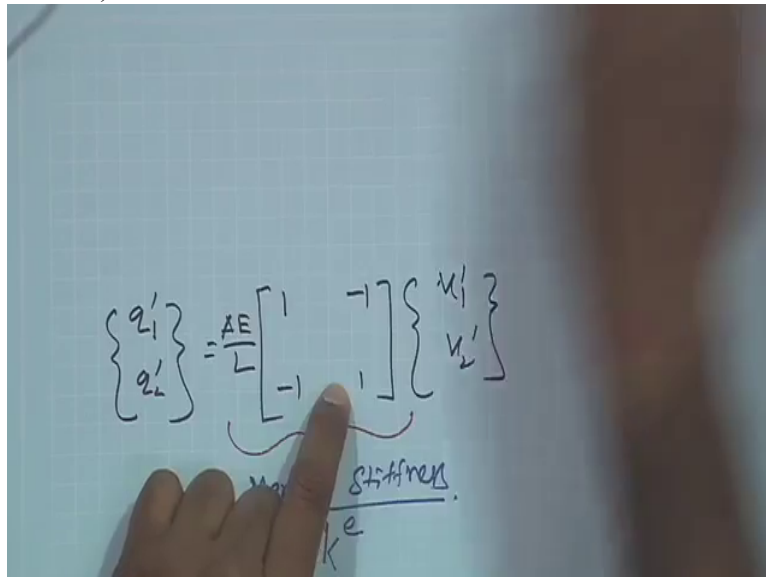 {q₁' q₂'} = AE/L [1 -1 -1 1] {u₁' u₂'}
Stiffness.
k^e